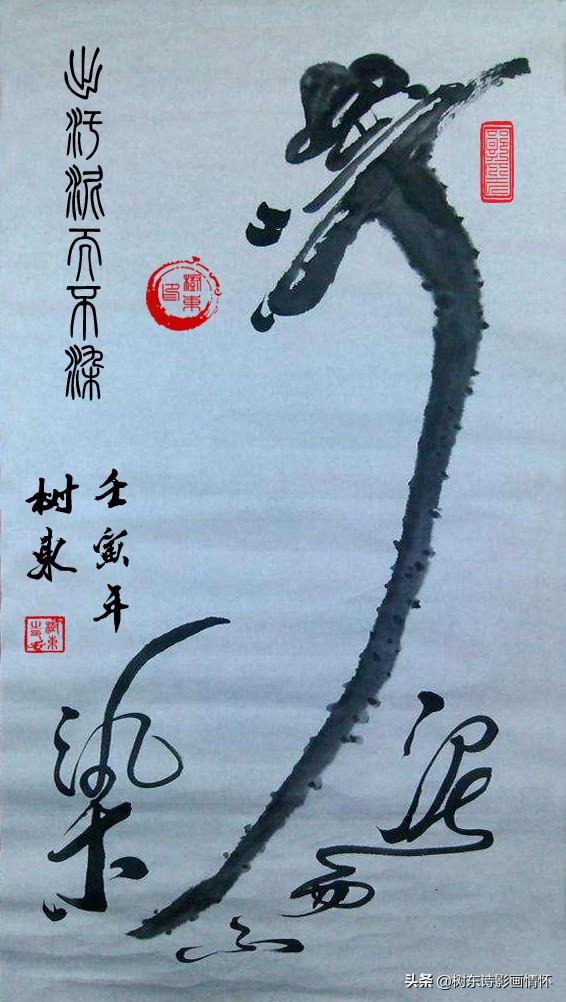 出污泥而不染
壬寅年
树东
樹東印
泥
而
不
染
头条 @树东诗影画情怀